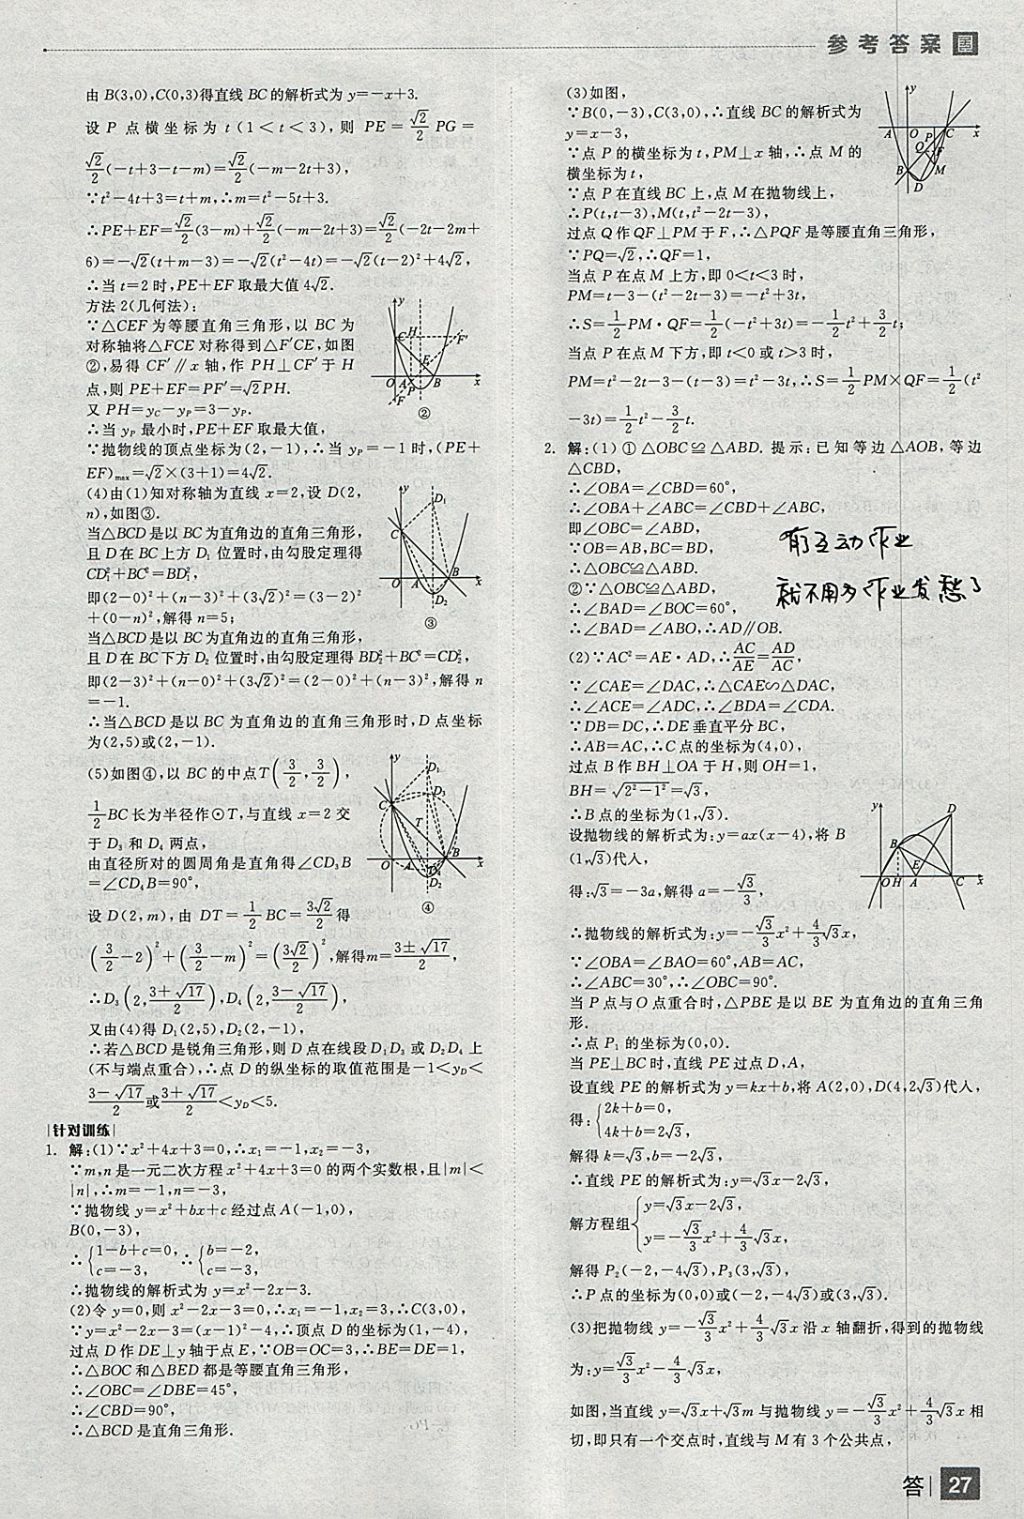 参考答案
由 B(3,0),C(0,3)得直线 BC 的解析式为 y=-x+3.
设 P 点横坐标为 t(1<t<3), 则 PE=√2/2 PG=
√2/2(-t+3-t-m)=√2/2(-m-2t+3),
∵t²-4t+3=t+m,∴m=t²-5t+3.
∴PE+EF=√2/2(3-m)+√2/2(-m-2t+3)=√2/2(-2t-2m+
6)=-√2(t+m-3)=-√2(t²-4t)=-√2(t-2)²+4√2,
∴当 t=2 时,PE+EF 取最大值 4√2.
方法 2(几何法):
∵△CEF 为等腰直角三角形,以 BC 为
对称轴将△FCE 对称得到△F′CE,如图
②,易得 CF′∥x 轴,作 PH⊥CF′于 H
点,则 PE+EF=PF′=√2PH.
又 PH=yC-yP=3-yP.
∴当 yP 最小时,PE+EF 取最大值,
∵抛物线的顶点坐标为(2,-1),∴当 yP=-1 时,(PE+
EF)max=√2×(3+1)=4√2.
(4)由(1)知对称轴为直线 x=2,设 D(2,
n),如图③.
当△BCD 是以 BC 为直角边的直角三角形,
且 D 在 BC 上方 D₁ 位置时,由勾股定理得
CD₁²+BC²=BD₁²,
即(2-0)²+(n-3)²+(3√2)²=(3-2)²
+(0-n)²,解得 n=5;
当△BCD 是以 BC 为直角边的直角三角形,
且 D 在 BC 下方 D₂ 位置时,由勾股定理得 BD₂²+BC²=CD₂²,
即(2-3)²+(n-0)²+(3√2)²=(2-0)²+(n-3)²,解得 n
=-1.
∴当△BCD 是以 BC 为直角边的直角三角形时,D 点坐标
为(2,5)或(2,-1).
(5)如图④,以 BC 的中点 T(3/2,3/2),
1/2BC 长为半径作⊙T,与直线 x=2 交
于 D₃ 和 D₄ 两点,
由直径所对的圆周角是直角得∠CD₃B
=∠CD₄B=90°,
设 D(2,m),由 DT=1/2BC=3√2/2得
(3/2-2)²+(3/2-m)²=(3√2/2)²,解得m=(3±√17)/2,
∴D₃(2,(3+√17)/2),D₄(2,(3-√17)/2),
又由(4)得 D₁(2,5),D₂(2,-1),
∴若△BCD 是锐角三角形,则 D 点在线段 D₁D₃ 或 D₂D₄ 上
(不与端点重合),∴点 D 的纵坐标的取值范围是-1<yD<
(3-√17)/2或(3+√17)/2<yD<5.
|针对训练|
1. 解:(1)∵x²+4x+3=0,∴x₁=-1,x₂=-3,
∵m,n 是一元二次方程 x²+4x+3=0 的两个实数根,且|m|<
|n|,∴m=-1,n=-3,
∵抛物线 y=x²+bx+c 经过点 A(-1,0),
B(0,-3),
∴{1-b+c=0, c=-3, ∴{b=-2, c=-3,
∴抛物线的解析式为 y=x²-2x-3.
(2)令 y=0,则 x²-2x-3=0,∴x₁=-1,x₂=3,∴C(3,0),
∵y=x²-2x-3=(x-1)²-4,∴顶点 D 的坐标为(1,-4),
过点 D 作 DE⊥y 轴于点 E,∵OB=OC=3,∴BE=DE=1,
∴△BOC 和△BED 都是等腰直角三角形,
∴∠OBC=∠DBE=45°,
∴∠CBD=90°,
∴△BCD 是直角三角形.
(3)如图,
∵B(0,-3),C(3,0),∴直线 BC 的解析式为
y=x-3,
∵点 P 的横坐标为 t,PM⊥x 轴,∴点 M 的
横坐标为 t,
∵点 P 在直线 BC 上,点 M 在抛物线上,
∴P(t,t-3),M(t,t²-2t-3),
过点 Q 作 QF⊥PM 于 F,∴△PQF 是等腰直角三角形,
∵PQ=√2,∴QF=1,
当点 P 在点 M 上方,即 0<t<3 时,
PM=t-3-(t²-2t-3)=-t²+3t,
∴S=1/2PM·QF=1/2(-t²+3t)=-1/2t²+3/2t;
当点 P 在点 M 下方,即 t<0 或 t>3 时,
PM=t²-2t-3-(t-3)=t²-3t,∴S=1/2PM×QF=1/2(t²
-3t)=1/2t²-3/2t.
2. 解:(1)①△OBC≌△ABD. 提示:已知等边△AOB,等边
△CBD,
∴∠OBA=∠CBD=60°,
∴∠OBA+∠ABC=∠CBD+∠ABC,
即∠OBC=∠ABD,
∵OB=AB,BC=BD,
∴△OBC≌△ABD.
②∵△OBC≌△ABD,
∴∠BAD=∠BOC=60°,
∴∠BAD=∠ABO,∴AD∥OB.
有互动作业
就不用为作业发愁了
(2)∵AC²=AE·AD,∴AC/AE=AD/AC,
∵∠CAE=∠DAC,∴△CAE∽△DAC,
∴∠ACE=∠ADC,∴∠BDA=∠CDA.
∵DB=DC,∴DE 垂直平分 BC,
∴AB=AC,∴C 点的坐标为(4,0),
过点 B 作 BH⊥OA 于 H,则 OH=1,
BH=√(2²-1²)=√3,
∴B 点的坐标为(1,√3).
设抛物线的解析式为:y=ax(x-4),将 B
(1,√3)代人,
得:√3=-3a,解得 a=-√3/3,
∴抛物线的解析式为:y=-√3/3x²+4/3√3x,
∵∠OBA=∠BAO=60°,AB=AC,
∴∠ABC=30°,∴∠OBC=90°.
当 P 点与 O 点重合时,△PBE 是以 BE 为直角边的直角三角
形.
∴点 P₁ 的坐标为(0,0).
当 PE⊥BC 时,直线 PE 过点 D,A,
设直线 PE 的解析式为 y=kx+b,将 A(2,0),D(4,2√3)代人,
得:{2k+b=0, 4k+b=2√3,
解得 k=√3,b=-2√3,
∴直线 PE 的解析式为:y=√3x-2√3,
解方程组{y=√3x-2√3, y=-√3/3x²+4/3√3x,
解得 P₂(-2,-4√3),P₃(3,√3),
∴P 点的坐标为(0,0)或(-2,-4√3)或(3,√3).
(3)把抛物线 y=-√3/3x²+4/3√3x 沿 x 轴翻折,得到的抛物线
为:y=√3/3x²-4/3√3x,
如图,当直线 y=√3x+√3m 与抛物线 y=-√3/3x²+4/3√3x 相
切,即只有一个交点时,直线与 M 有 3 个公共点,
答 27